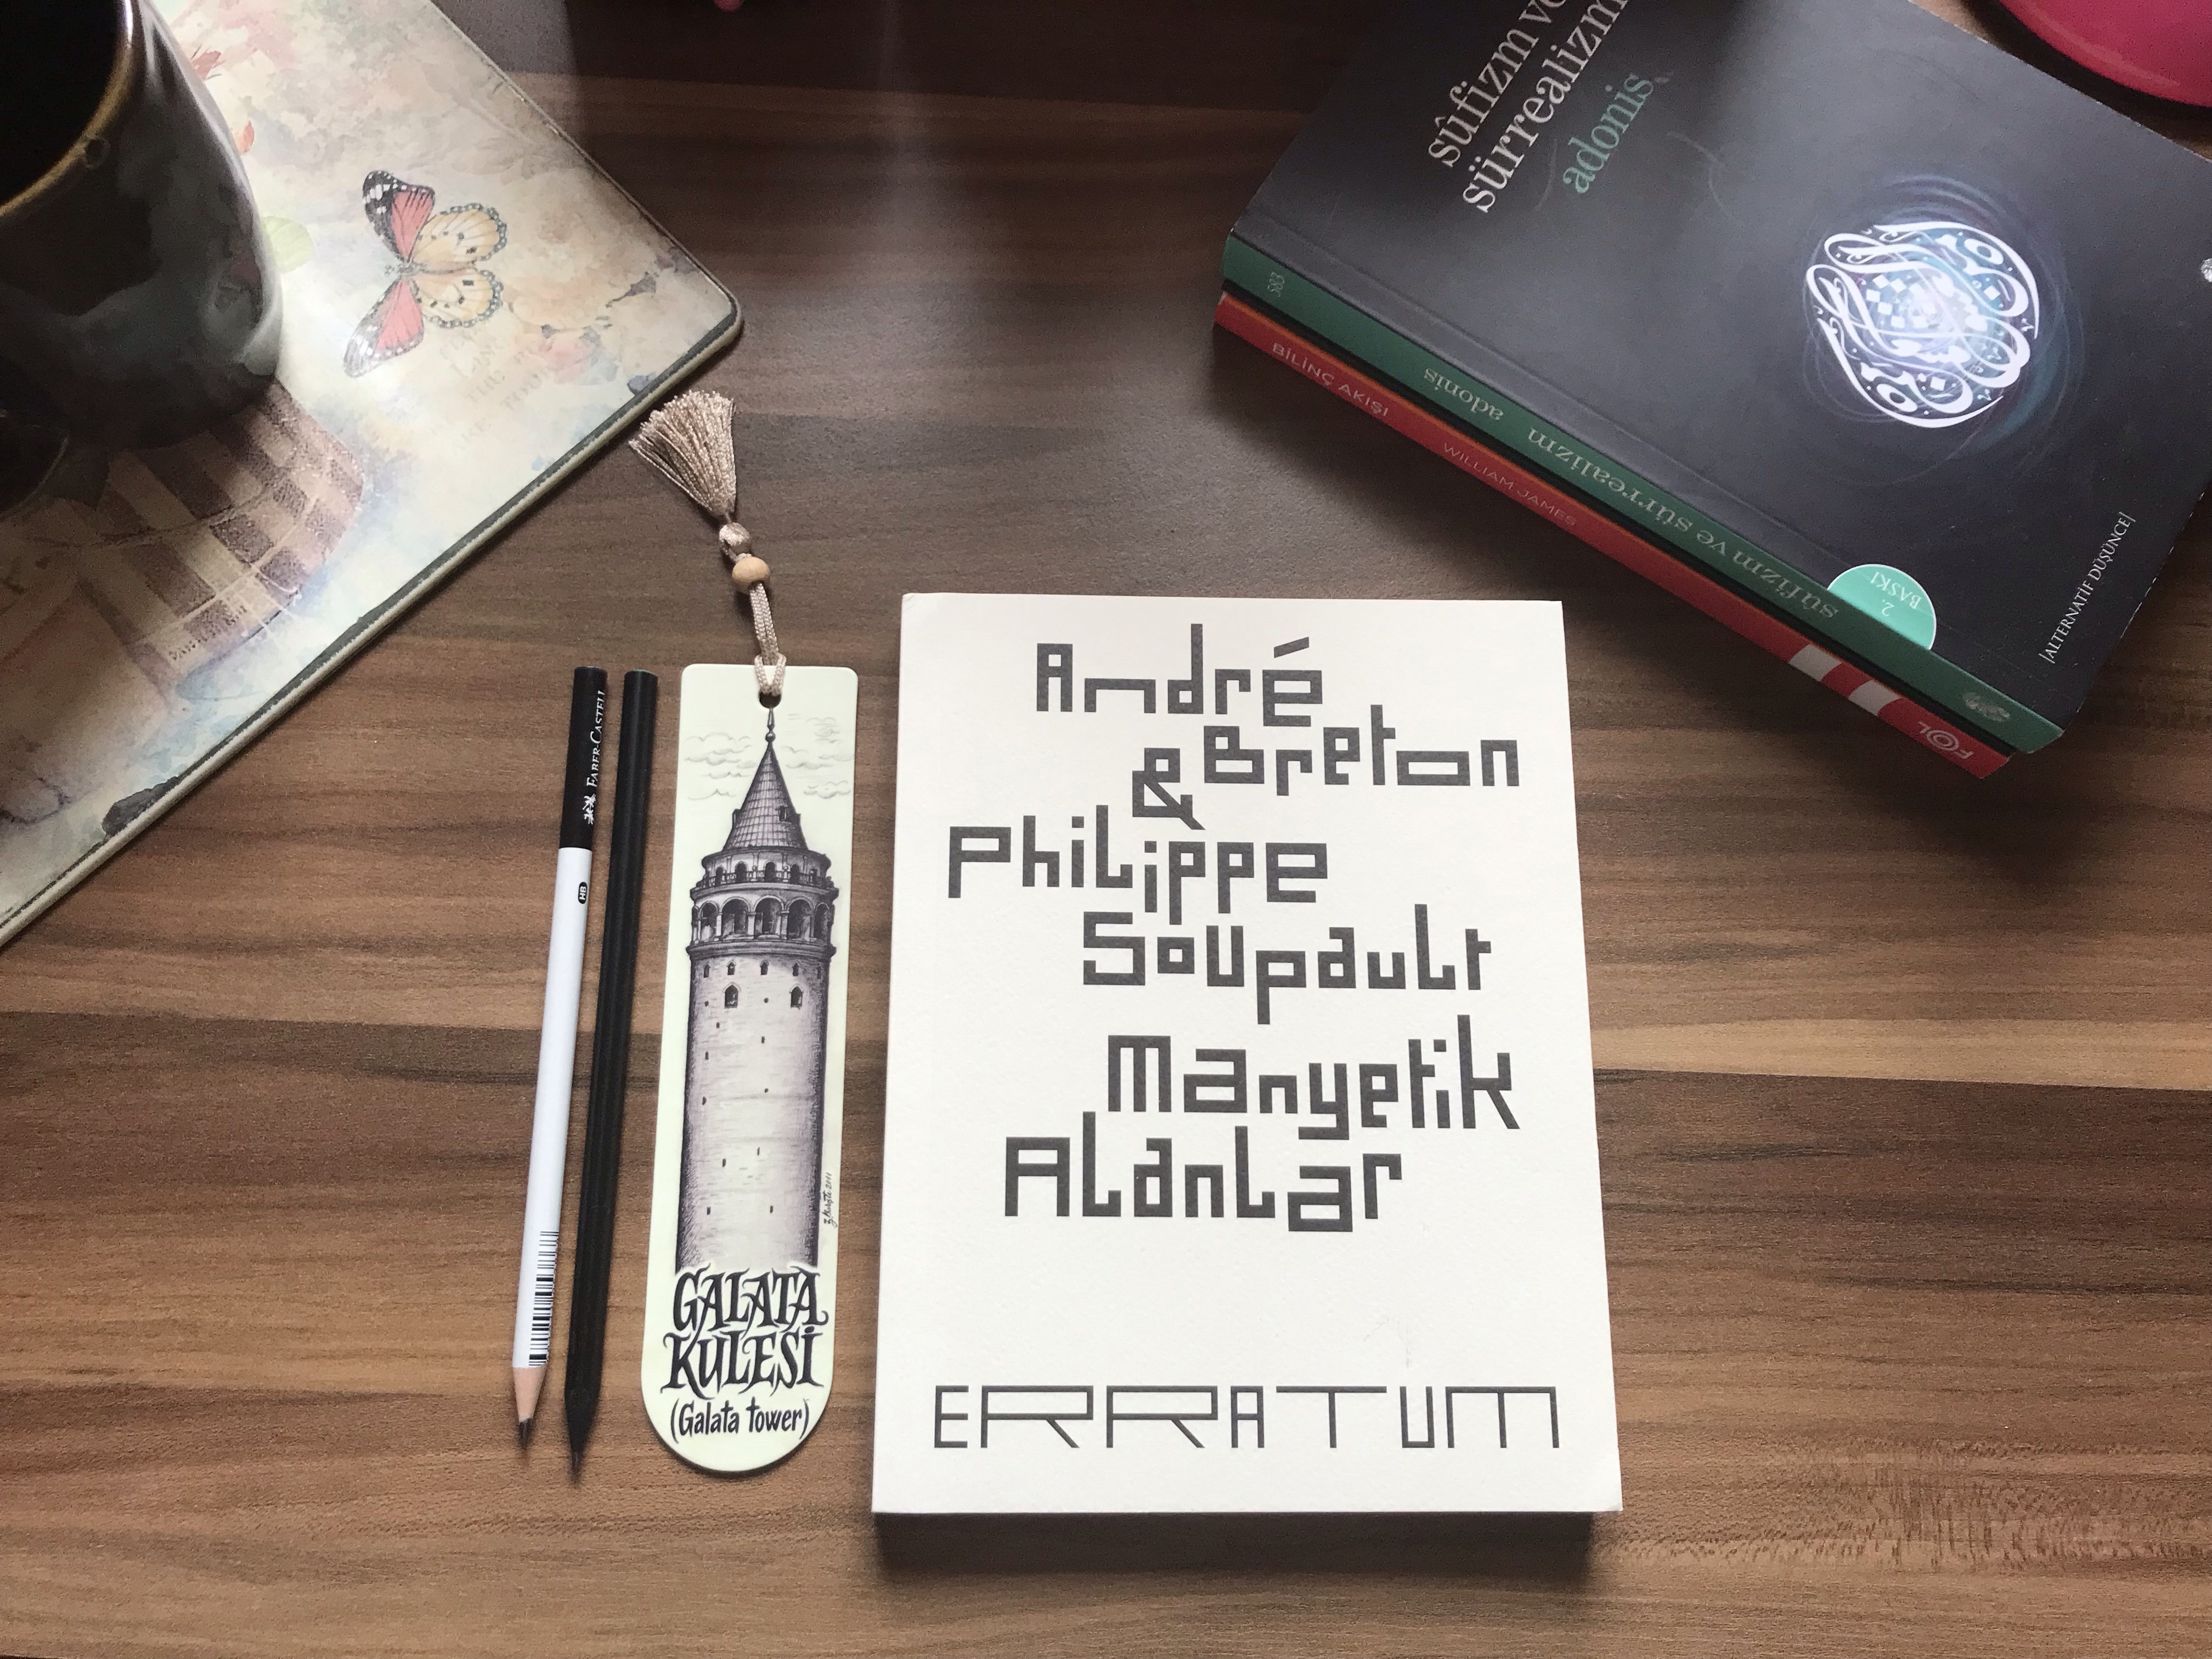 sûfizm ve
sürrealizm
adonis
583
adonis sûfizm ve sürrealizm
BİLİNÇ AKIŞI WILLIAM JAMES
FOL
2.
BASKI
|ALTERNATİF DÜŞÜNCE|
FABER-CASTELL
HB
GALATA
KULESİ
(Galata tower)
André
Breton
&
Philippe
Soupault
Manyetik
Alanlar
ERRATUM